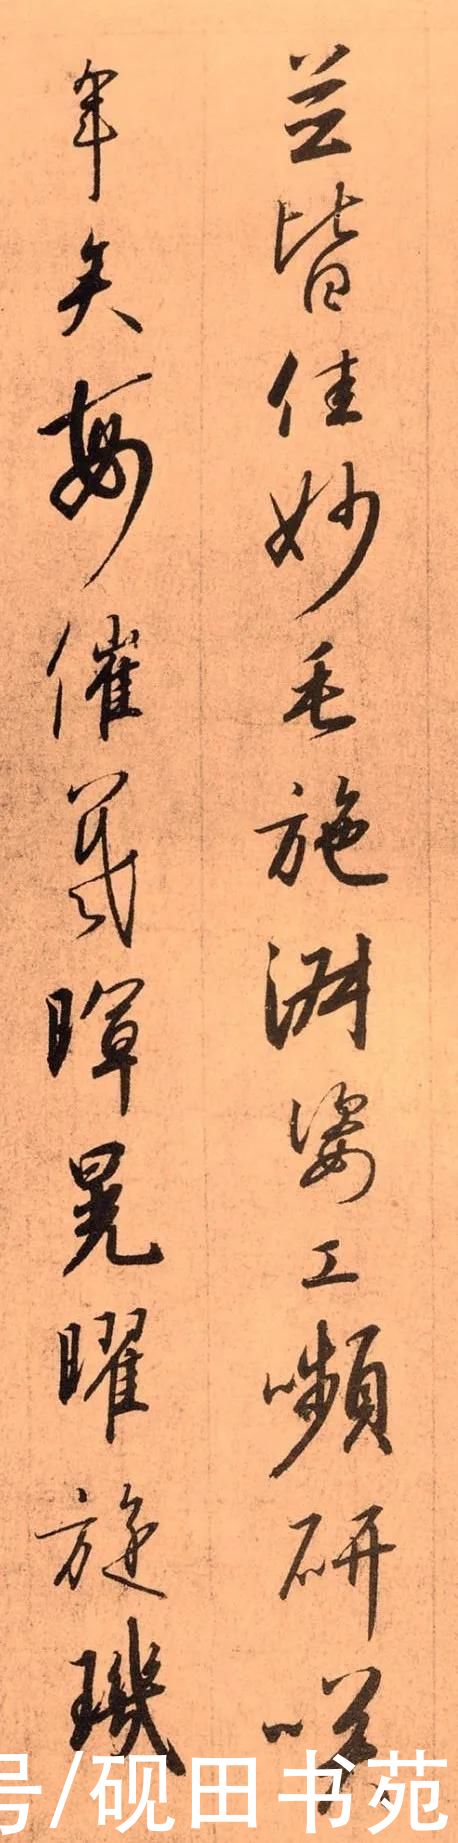 並皆佳妙毛施淑姿工嚬研咲
年矢每催羲暉晃曜旋璣
号/砚田书苑